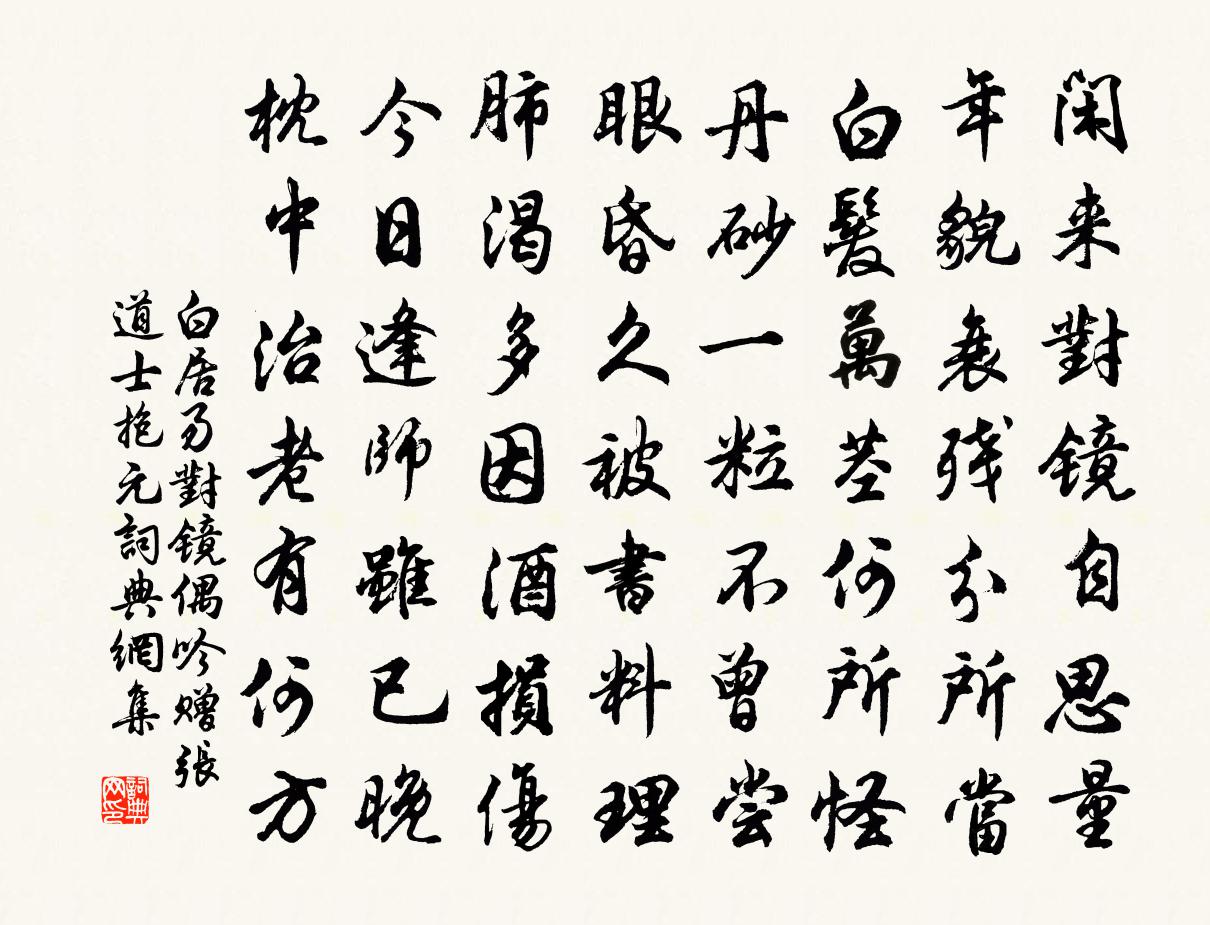 闲来對镜自思量
年貌衰残分所當
白髮萬茎何所怪
丹砂一粒不曾尝
眼昏久被書料理
肺渴多因酒損傷
今日逢師雖已晚
枕中治老有何方
白居易對镜偶吟赠張
道士抱元詞典網集
詞典网印